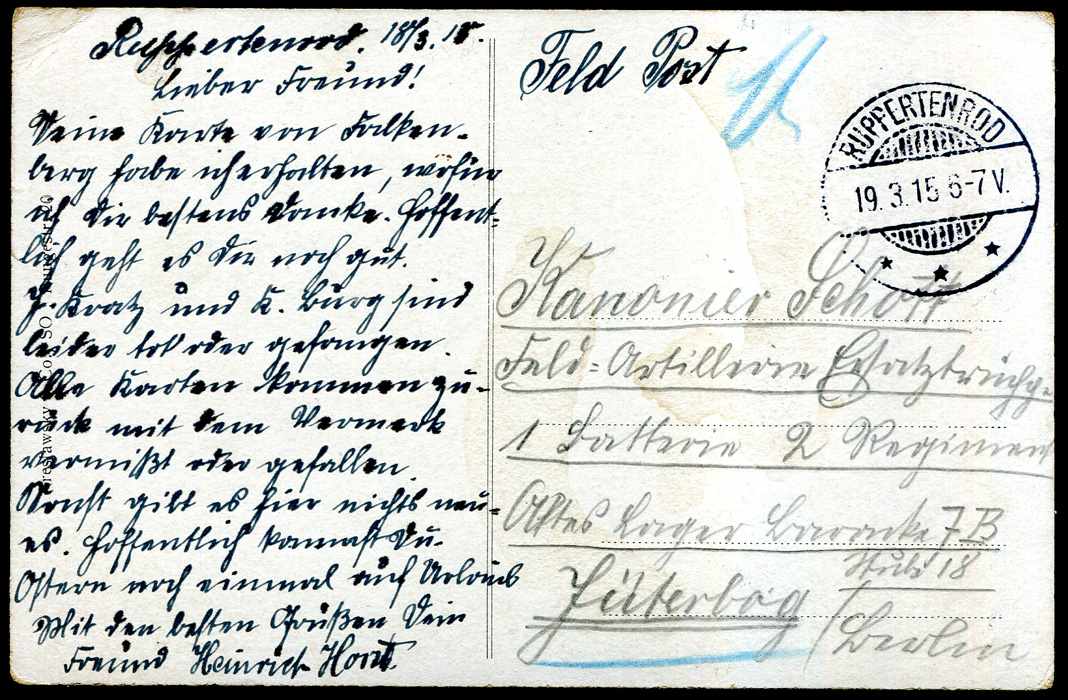 Ruppertenrod. 18/3. 15.
Lieber Freund!
Deine Karte von Falken-
berg habe ich erhalten, wofür
ich Dir bestens danke. Hoffent-
lich geht es Dir noch gut.
H. Kratz und K. Burg sind
leider tot oder gefangen.
Alle Karten kommen zu-
rück mit dem Vermerk
vermißt oder gefallen.
Sonst gibt es hier nichts neu-
es. Hoffentlich kommst Du
Ostern noch einmal auf Urlaub
Mit den besten Grüßen Dein
Freund Heinrich Horst
Feld Post
RUPPERTENROD
19.3.15 6-7V.
Kanonier Schott
Feld-Artillerie Ersatztruppe
1 Batterie 2 Regiment
Altes Lager Baracke 7B
Stube 18
Jüterbog
Berlin